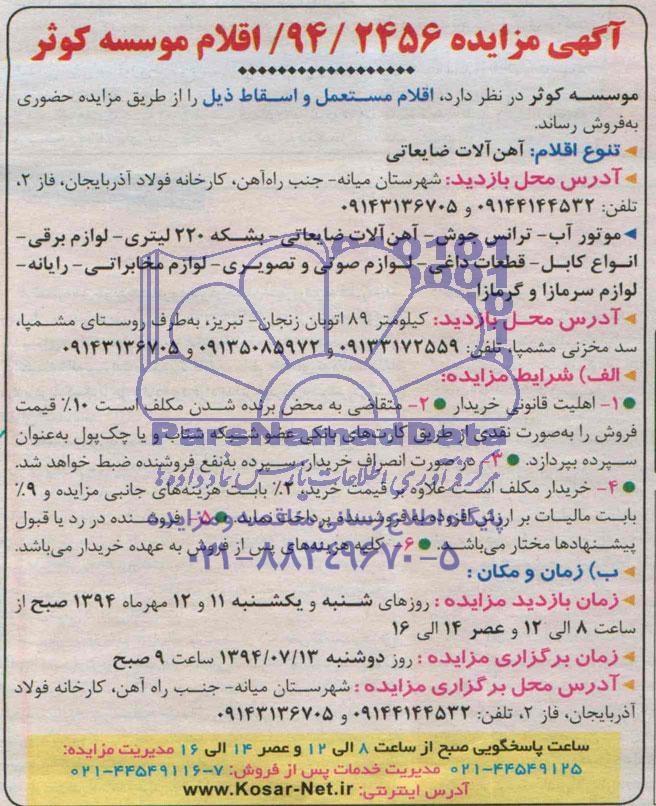 آگهی مزایده ۲۴۵۶ /۹۴/ اقلام موسسه کوثر
موسسـه کوثر در نظر دارد، اقلام مستعمل و اسقاط ذیل را از طریق مزایده حضوری
به‌فروش رساند.
تنوع اقلام: آهن‌آلات ضایعاتی
آدرس محل بازدید: شهرستان میانه- جنب راه‌آهن، کارخانه فولاد آذربایجان، فاز ۲،
تلفن: ۰۹۱۴۴۱۴۴۵۳۲ و ۰۹۱۴۳۱۳۶۷۰۵
موتور آب- ترانس جوش- آهن‌آلات ضایعاتی- بشکه ۲۲۰ لیتری- لوازم برقی-
انواع کابل- قطعات داغی- لوازم صوتی و تصویری- لوازم مخابراتی- رایانه-
لوازم سرمازا و گرمازا
آدرس محل بازدید: کیلومتر ۸۹ اتوبان زنجان- تبریز، به‌طرف روستای مشمپا،
سد مخزنی مشمپا، تلفن: ۰۹۱۳۳۱۷۲۵۵۹ و ۰۹۱۳۵۰۸۵۹۷۲ و ۰۹۱۴۳۱۳۶۷۰۵
الف) شرایط مزایده:
۱- اهلیت قانونی خریدار ● ۲- متقاضی به محض برنده شدن مکلف است ۱۰٪ قیمت
فروش را به‌صورت نقدی از طریق کارت‌های بانکی عضو شبکه شتاب و یا چک‌پول به‌عنوان
سپرده بپردازد. ● ۳- در صورت انصراف خریدار، سپرده به‌نفع فروشنده ضبط خواهد شد.
● ۴- خریدار مکلف است علاوه بر قیمت خرید، ۲٪ بابت هزینه‌های جانبی مزایده و ۹٪
بابت مالیات بر ارزش افزوده به فروشنده پرداخت نماید. ● ۵- فروشنده در رد یا قبول
پیشنهادها مختار می‌باشد. ● ۶- کلیه هزینه‌های پس از فروش به عهده خریدار می‌باشد.
ب) زمان و مکان :
زمان بازدید مزایده : روزهای شنبه و یکشنبه ۱۱ و ۱۲ مهرماه ۱۳۹۴ صبح از
ساعت ۸ الی ۱۲ و عصر ۱۴ الی ۱۶
زمان برگزاری مزایده : روز دوشنبه ۱۳۹۴/۰۷/۱۳ ساعت ۹ صبح
آدرس محل برگزاری مزایده : شهرستان میانه- جنب راه آهن، کارخانه فولاد
آذربایجان، فاز ۲، تلفن: ۰۹۱۴۴۱۴۴۵۳۲ و ۰۹۱۴۳۱۳۶۷۰۵
ساعت پاسخگویی صبح از ساعت ۸ الی ۱۲ و عصر ۱۴ الی ۱۶ مدیریت مزایده:
۰۲۱-۴۴۵۴۹۱۲۵ مدیریت خدمات پس از فروش: ۷-۰۲۱-۴۴۵۴۹۱۱۶
آدرس اینترنتی: www.Kosar-Net.ir
ParsNamadData
مرکز فرآوری اطلاعات پارس نماد داده‌ها
پایگاه اطلاع رسانی مناقصه و مزایده
۰۲۱-۸۸۳۴۹۶۷۰-۵